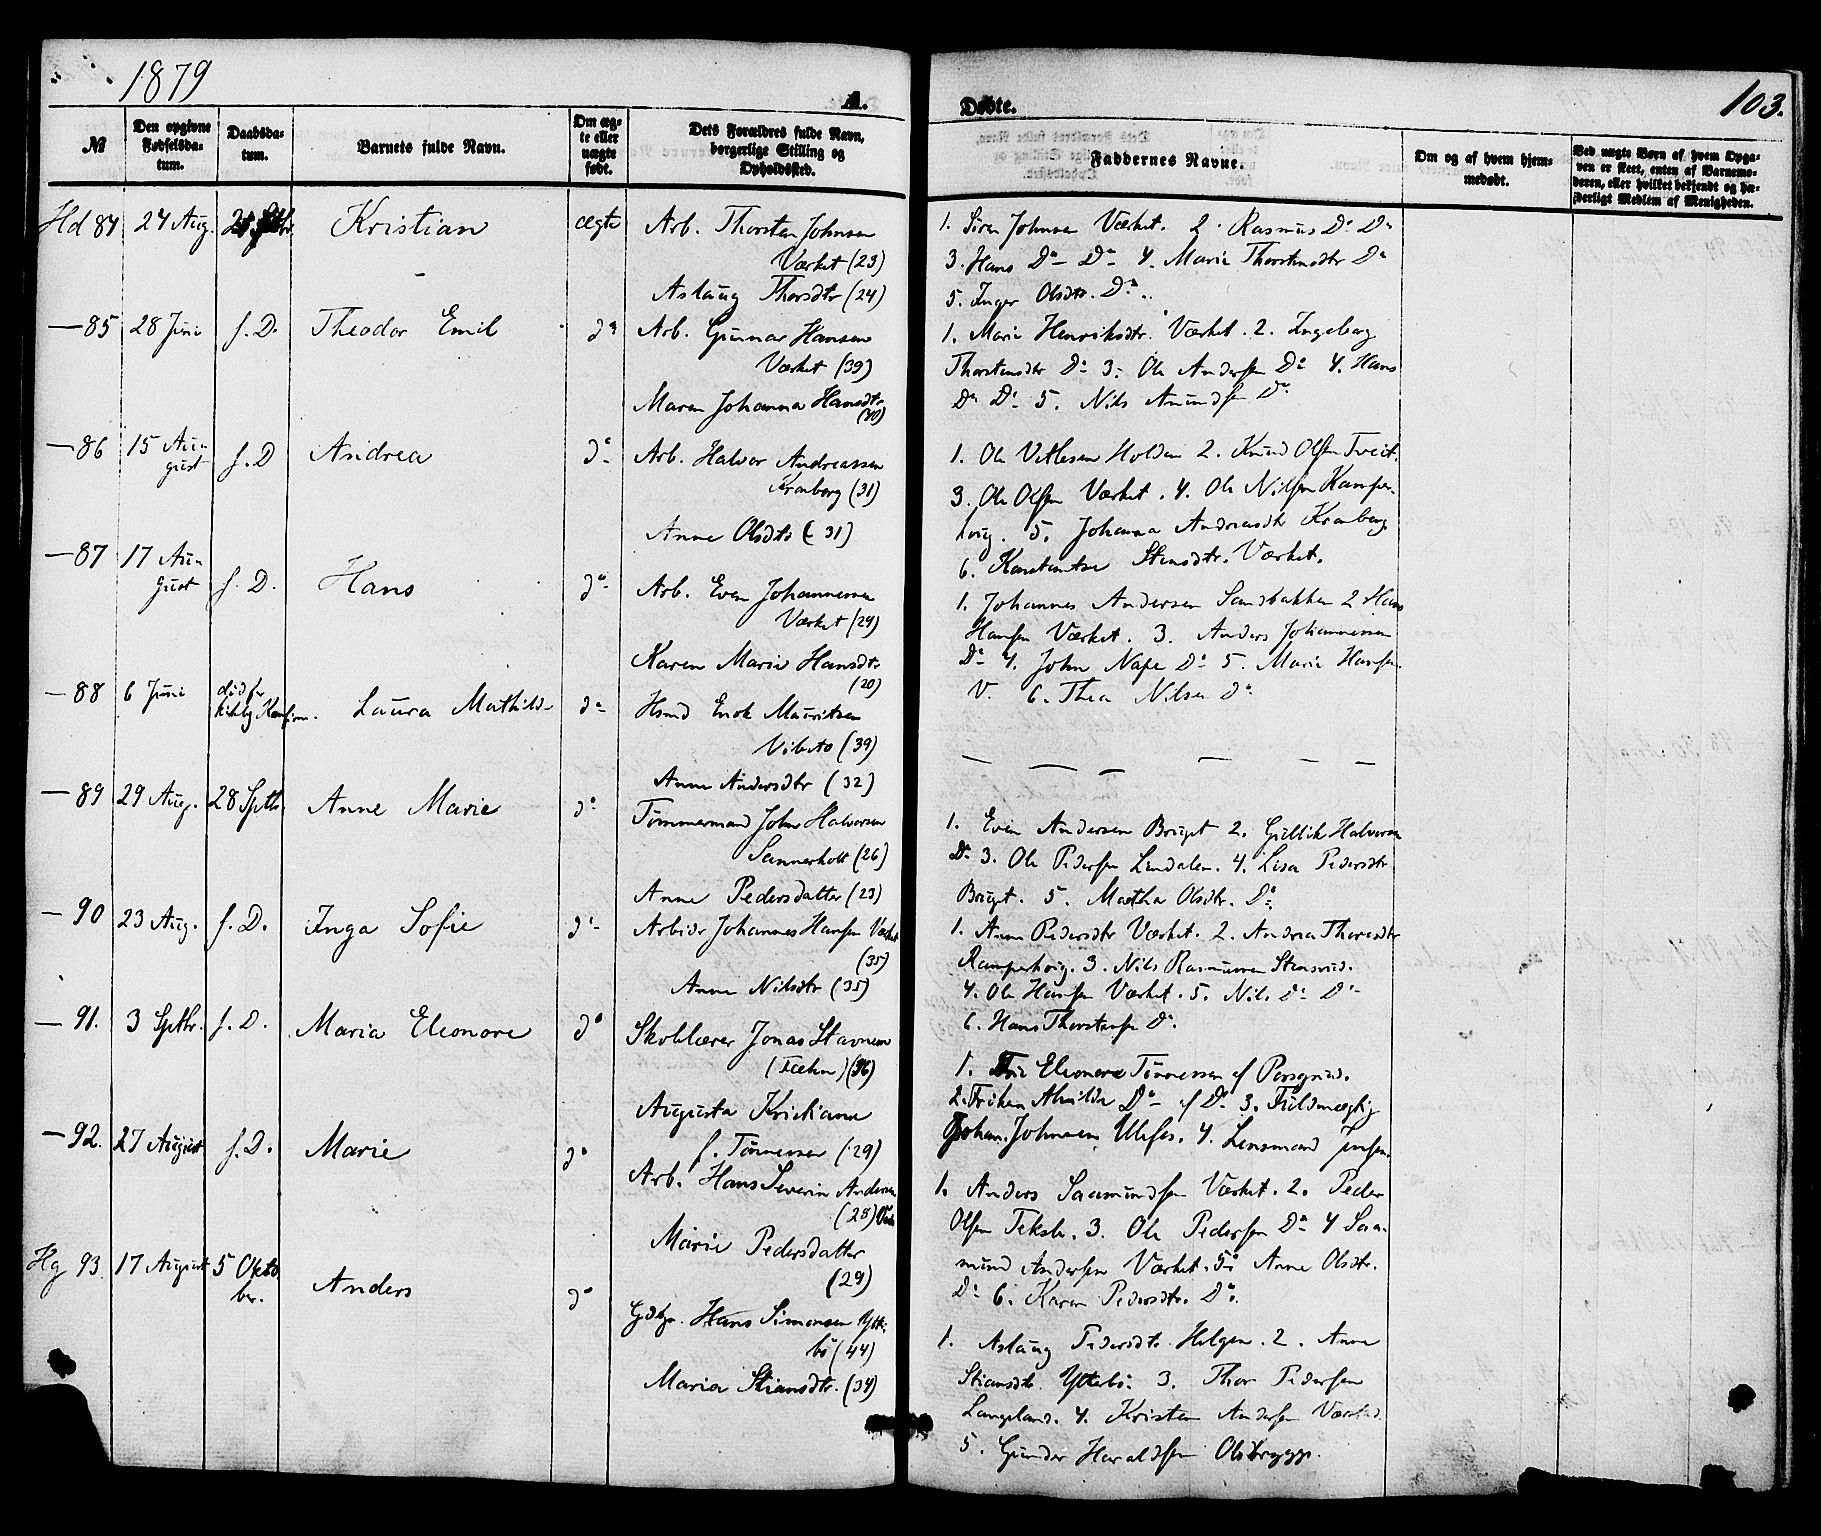 1879
A.
Døbte.
103.
№
Den opgivne
Fødselsda-
tum.
Daabsda-
tum.
Barnets fulde Navn.
Om æg-
te eller
uægte
født.
Dets Forældres fulde Navn,
borgerlige Stilling og
Opholdssted.
Faddernes Navne.
Om og af hvem hjem-
medøbt.
Ved uægte Børn af hvem Opga-
ven er skeet, enten af Barnemo-
deren, eller hvilket bekjendt og hæ-
derligt Medlem af Menigheden.
Hd 84 24 Aug. Kristian ægte Arb. Thorsten Johnsen
Værket (23)
Aslaug Thorsdtr (24)
1. Søren Johnsen Værket. 2. Rasmus Do Do
3. Hans Do Do 4. Marie Thorstensdtr Do
5. Inger Olsdtr. Do.
— 85 28 Juni s. D. Theodor Emil do Arb. Gunnar Hansen
Værket (39)
Maren Johanna Hansdtr
(40)
1. Marie Henriksdtr. Værket. 2. Ingeborg
Thorstensdtr Do 3. Ole Andersen Do 4. Hans
Do Do 5. Nils Amundsen Do
— 86 15 Au-
gust s. D Andrea do Arb. Halvor Andreassen
Kronborg (31)
Anne Olsdtr (31)
1. Ole Vetlesen Holden 2. Knud Olsen Tveit.
3. Ole Olsen Værket. 4. Ole Nilsen Kamper-
høug. 5. Johanna Andreasdtr Kronborg
6. Konstantse Stensdtr. Værket.
— 87 17 Au-
gust s. D. Hans do Arb. Even Johannessen
Værket (29)
Karen Marie Hansdtr
(20)
1. Johannes Andersen Sandbakken 2 Hans
Hansen Værket. 3. Anders Johannessen
Do 4. John Nape Do 5. Marie Hansen
V. 6. Thea Nilsen Do
— 88 6 Juni død før
kirkelig Konfirm. Laura Mathilde do Hsmd Enok Mauritsen
Vibeto (39)
Anne Andersdtr (32)
— — — — — —
— 89 29 Aug. 28 Sptbr. Anne Marie do Tømmermand John Halvorsen
Sannerholt (26)
Anne Pedersdatter (23)
1. Even Andersen Bruget 2. Gullik Halvorsen
Do 3. Ole Pedersen Lindalen. 4. Lisa Pedersdtr
Bruget. 5. Martha Olsdtr. Do
— 90 23 Aug. s. D. Inga Sofie do Arbidr Johannes Hansen Værket
(35)
Anne Nilsdtr (35)
1. Anne Pedersdtr Værket. 2. Andrea Thoresdtr
Kamperhøug. 3. Nils Rasmussen Stensrud.
4. Ole Hansen Værket. 5. Nils Do Do
6. Hans Thorstensen Do.
— 91. 3 Sptbr. s. D. Maria Eleonore do Skolelærer Jonas Stavnem
(36)
Augusta Kristiane
f. Tønnessen (29)
1. Fru Eleonore Tønnessen af Porsgrund.
2. Frøken Alvilde Do af Do 3. Fuldmægtig
Johan Johnsen Ulefos. 4. Lensmand Jensen
— 92. 27 August s. D. Marie do Arb. Hans Severin Andersen
(28)
Marie Pedersdatter
(29)
1. Anders Saamundsen Værket. 2. Peder
Olsen Teksle. 3. Ole Pedersen Do 4 Saa-
mund Andersen Værket. 5. Anne Olsdtr.
Do 6. Karen Pedersdtr. Do.
Hg 93 17 August 5 Okto
ber. Anders do Gdbr. Hans Simonsen Ytter-
bø (44)
Maria Stiansdtr. (34)
1. Aslaug Pedersdtr Helgen. 2. Anne
Stiansdtr. Ytterbø. 3. Thor Pedersen
Langeland. 4. Kristen Andersen
5. Gunder Haraldsen Olsbrygge.